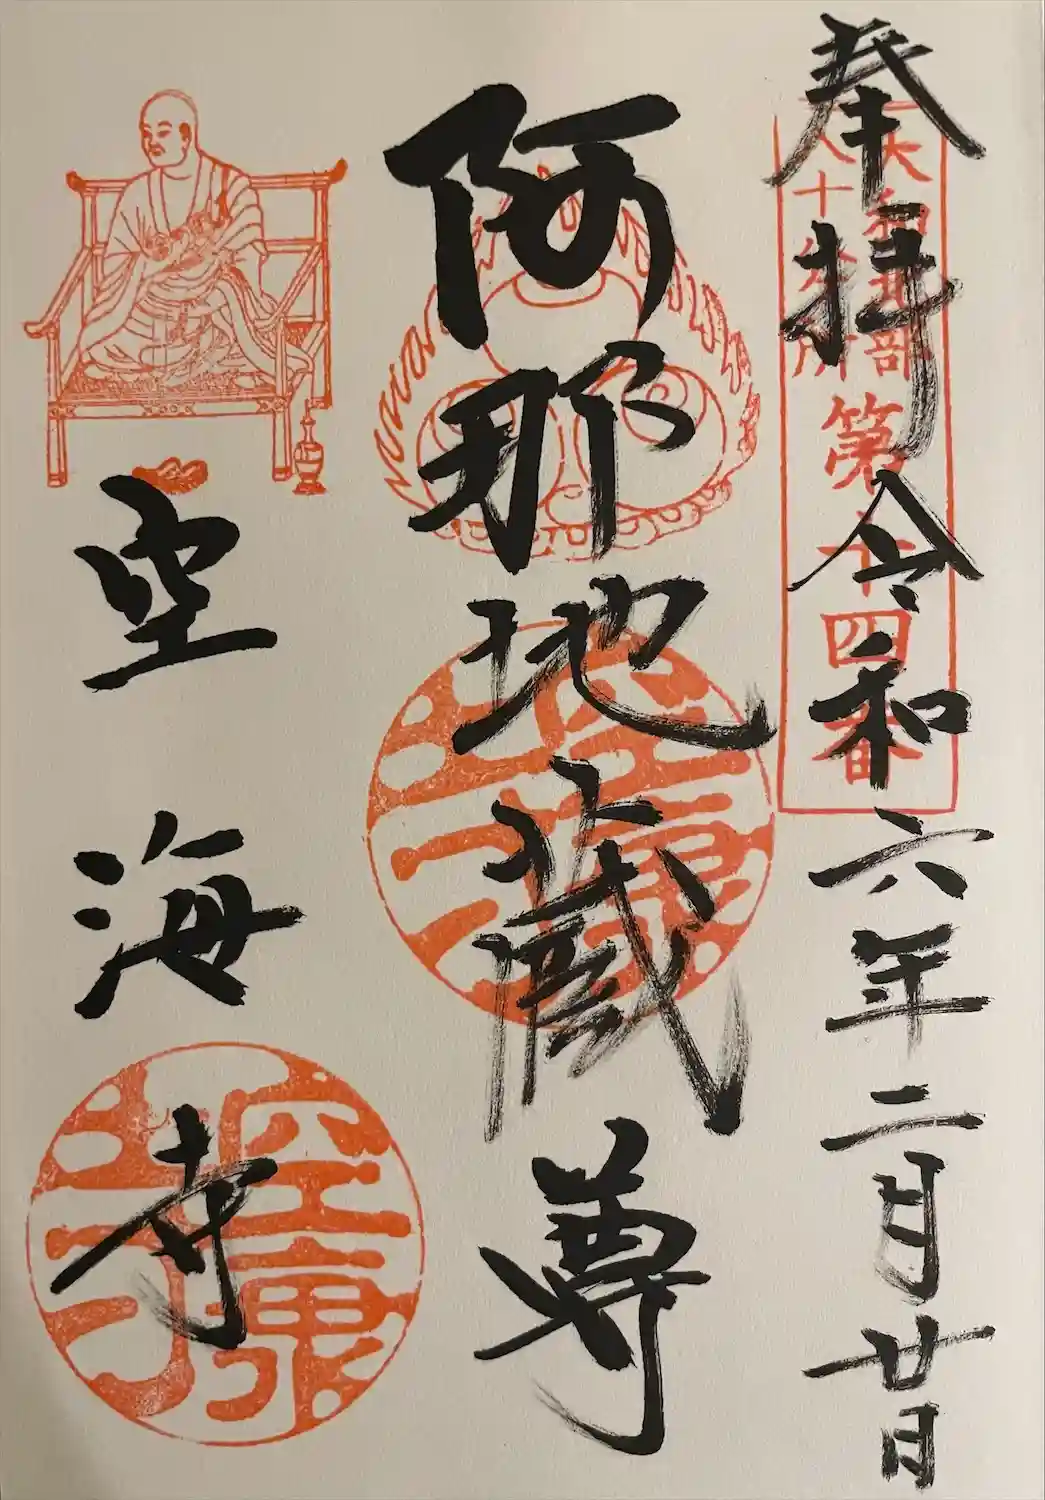 奉拝 令和六年二月廿日
大和北部
八十八ヶ所
第六十四番
阿那地蔵尊
空海寺